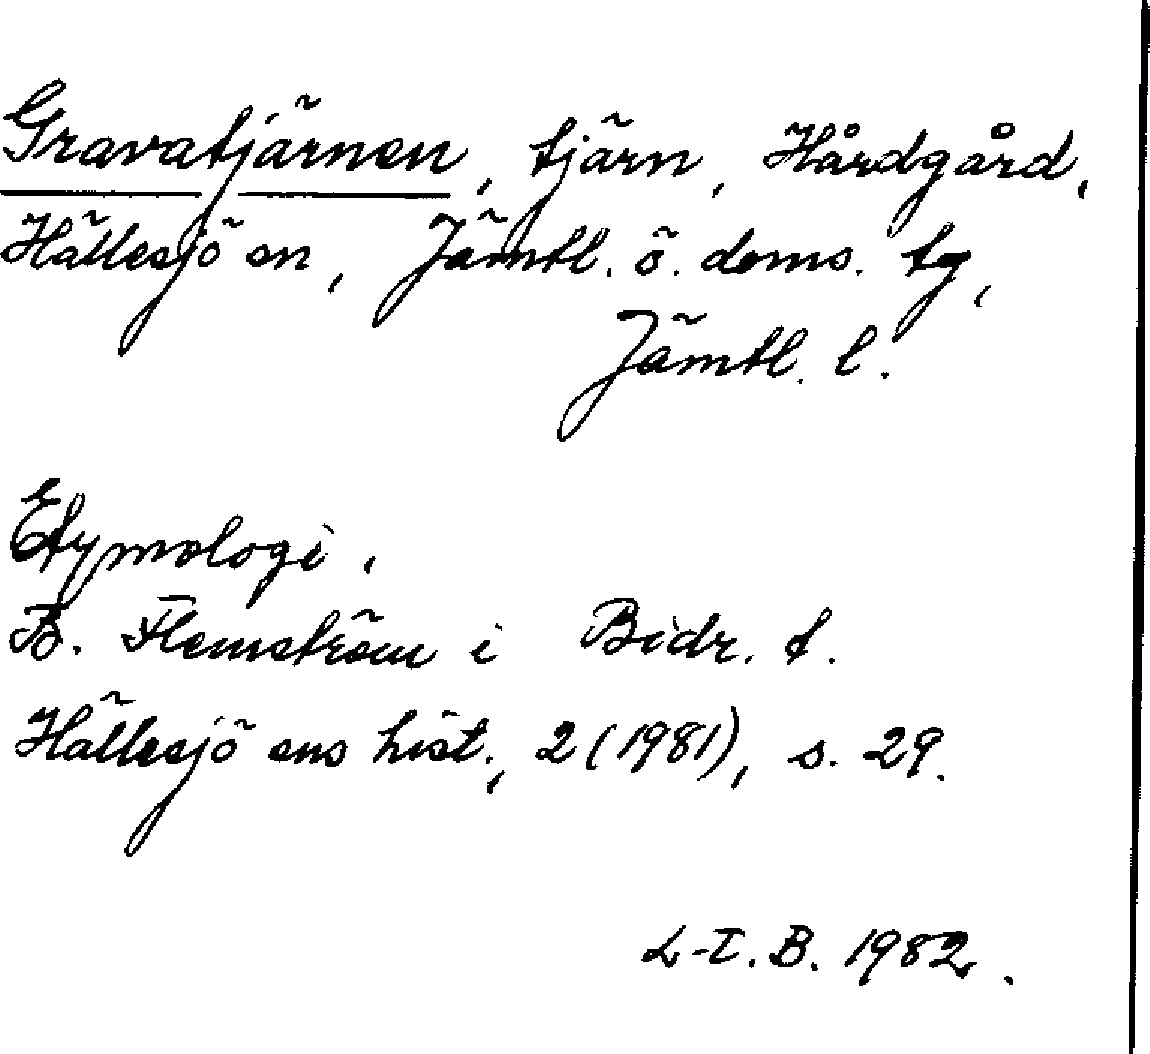 Gravatjärnen, tjärn, Hårdgård,
Hällesjö sn, Jämtl. ö. doms. tg,
Jämtl. l.
Etymologi.
B. Flemström i Bidr. t.
Hällesjö sns hist., 2 (1981), s. 29.
L-T. B. 1982.